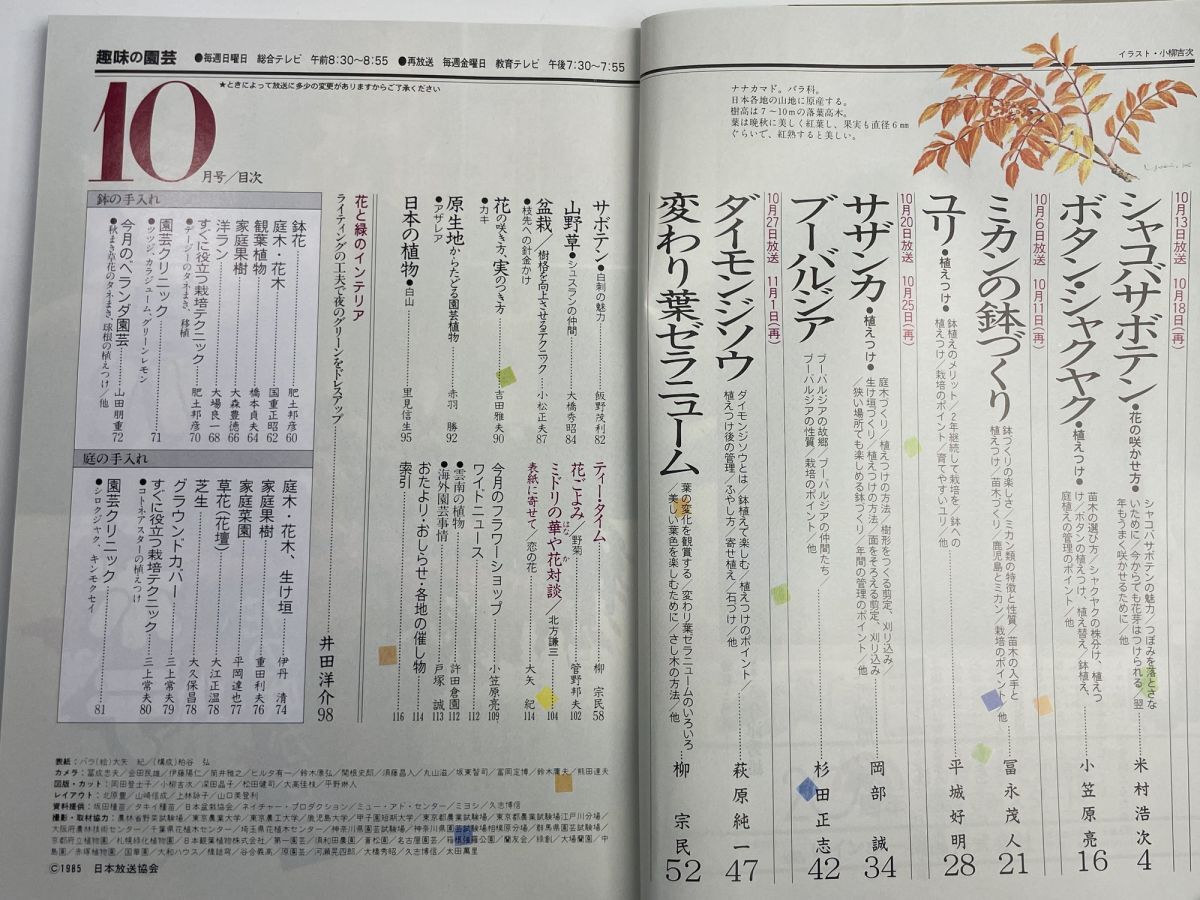 趣味の園芸 ●毎週日曜日 総合テレビ 午前8:30〜8:55 ●再放送 毎週金曜日 教育テレビ 午後7:30〜7:55
★ときによって放送に多少の変更がありますからご了承ください
10月号/目次
イラスト・小柳吉次
ナナカマド。バラ科。
日本各地の山地に原産する。
樹高は7〜10mの落葉高木。
葉は晩秋に美しく紅葉し、果実も直径6mm
ぐらいで、紅熟すると美しい。
10月13日放送 10月18日(再)
シャコバサボテン●花の咲かせ方●
シャコバサボテンの魅力/つぼみを落とさな
いために/今からでも花芽はつけられる/翌
年もうまく咲かせるために/他
米村浩次 4
ボタン・シャクヤク●植えつけ●
苗木の選び方/シャクヤクの株分け、植えつ
け/ボタンの植えつけ、植え替え/鉢植え、
庭植えの管理のポイント/他
小笠原亮 16
10月6日放送 10月11日(再)
ミカンの鉢づくり
鉢づくりの楽しさ/ミカン類の特徴と性質/苗木の入手と
植えつけ/苗木づくり/鹿児島とミカン/栽培のポイント/他
冨永茂人 21
ユリ●植えつけ●
鉢植えのメリット/2年継続して栽培を/鉢への
植えつけ/栽培のポイント/育てやすいユリ/他
平城好明 28
10月20日放送 10月25日(再)
サザンカ●植えつけ●
庭木づくり/植えつけの方法/樹形をつくる剪定、刈り込み/
生け垣づくり/植えつけの方法/面をそろえる剪定、刈り込み
/狭い場所でも楽しめる鉢づくり/年間の管理のポイント/他
岡部誠 34
ブーバルジア
ブーバルジアの故郷/ブーバルジアの仲間たち/
ブーバルジアの性質/栽培のポイント/他
杉田正志 42
10月27日放送 11月1日(再)
ダイモンジソウ
ダイモンジソウとは/鉢植えで楽しむ/植えつけのポイント/
植えつけ後の管理/ふやし方/寄せ植え/石づけ/他
萩原純一 47
変わり葉ゼラニューム
葉の変化を観賞する/変わり葉ゼラニュームのいろいろ
/美しい葉色を楽しむために/さし木の方法/他
柳宗民 52
サボテン●白刺の魅力 飯野茂利 82
山野草●シュスランの仲間 大橋秀昭 84
盆栽/樹格を向上させるテクニック 小松正夫 87
●枝先への針金かけ
花の咲き方、実のつき方 吉田雅夫 90
●カキ
原生地からたどる園芸植物 赤羽 勝 92
●アザレア
日本の植物●白山 里見信生 95
花と緑のインテリア
ライティングの工夫で夜のグリーンをドレスアップ 井田洋介 98
ティー・タイム 柳 宗民 58
花ごよみ/野菊 菅野邦夫 102
ミドリの華や花対談/北方謙三 104
表紙に寄せて/恋の花 大矢 紀 114
今月のフラワーショップ 小笠原亮 109
ワイドニュース 112
●雲南の植物 許田倉園 112
●海外園芸事情 戸塚 誠 113
おたより・おしらせ・各地の催し物 114
索引 116
鉢の手入れ
鉢花 肥土邦彦 60
庭木・花木 国重正昭 62
観葉植物 橋本貞夫 64
家庭果樹 大森豊徳 66
洋ラン 大場良一 68
すぐに役立つ栽培テクニック 肥土邦彦 70
●デージーのタネまき、移植
園芸クリニック 71
●ツツジ、カラジューム、グリーンレモン
今月のベランダ園芸 山田朋重 72
●秋まき草花のタネまき、球根の植えつけ/他
庭の手入れ
庭木・花木、生け垣 伊丹 清 74
家庭果樹 重田利夫 76
家庭菜園 平岡達也 77
草花(花壇) 大江正温 78
芝生 大久保昌 78
グラウンドカバー 三上常夫 79
すぐに役立つ栽培テクニック 三上常夫 80
●コトネアスターの植えつけ
園芸クリニック 81
●シロクジャク、キンモクセイ
表紙：バラ(絵)大矢 紀/(構成)粕谷 弘
カメラ：冨成忠夫/会田民雄/伊藤陽仁/筒井雅之/ヒルタ有一/鈴木康弘/関根史郎/須藤昌人/丸山滋/坂東智司/富岡定博/鈴木庸夫/熊田達夫
図版・カット：岡田登士子/小柳吉次/深田晶子/松田健司/大高佳枝/平野琳人
レイアウト：北原豊/山崎信成/上林詠子/山口美登利
資料提供：坂田種苗/タキイ種苗/日本盆栽協会/ネイチャー・プロダクション/ミュー・アド・センター/ミヨシ/久志博信
撮影・取材協力：農林省野菜試験場/東京農業大学/東京農工大学/鹿児島大学/甲子園短期大学/東京都農業試験場/東京都農業試験場江戸川分場/
大阪府農林技術センター/千葉県花植木センター/埼玉県花植木センター/神奈川県園芸試験場/神奈川県園芸試験場相模原分場/群馬県園芸試験場/
京都府立植物園/札幌緑化植物園/日本観葉植物株式会社/第一園芸/須和田農園/蒼松園/名古屋園芸/箱根強羅公園/蘭友会/緑創/大場蘭園/中
島園/赤塚植物園/国華園/大和ハウス/橋詰寓/谷合義高/原園芸/河瀬晃四郎/大橋秀昭/久志博信/太田萬里
©1985 日本放送協会